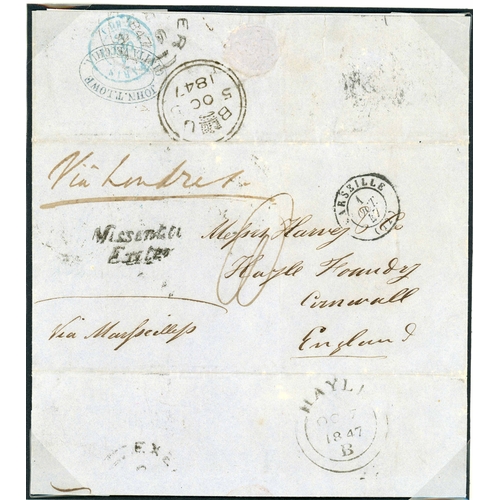 JOHN.T.LOWE
ER
B
5 OC 5
1847
Via Londres.
MARSEILLE
1
OCT.
47
Missent to
Exeter
Messrs Harvey & Co
Hayle Foundry
Cornwall
England
Via Marseilles
HAYL
OC 7
1847
B
EXE